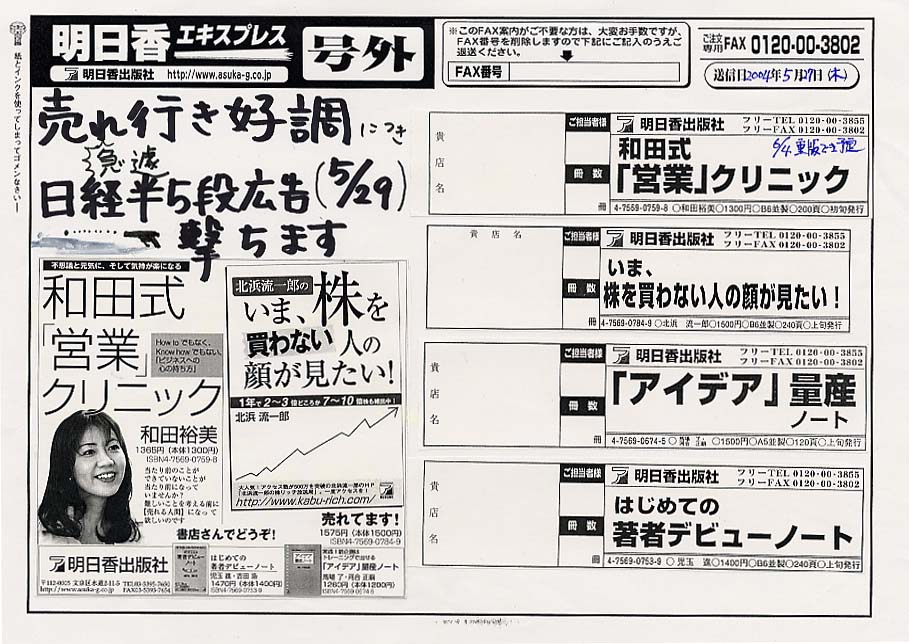 紙とインクを使ってしまってゴメンなさいー
明日香エキスプレス
号外
明日香出版社 http://www.asuka-g.co.jp
※このFAX案内がご不要な方は、大変お手数ですが、
FAX番号を削除しますので下記にご記入のうえご
返送ください。
FAX番号
ご注文専用 FAX 0120-00-3802
送信日2004年5月27日(木)
売れ行き好調につき
急遽
日経半5段広告(5/29)
撃ちます
不思議と元気に、そして気持が楽になる
和田式
「営業」
クリニック
How to でもなく、
Know how でもない、
「ビジネスへの
心の持ち方」
和田裕美
1365円(本体1300円)
ISBN4-7569-0759-8
当たり前のことが
できていないことが
当たり前になって
いませんか?
難しいことを考える前に
「売れる人間」になって
欲しいのです
北浜流一郎の
いま、株を
買わない人の
顔が見たい!
1年で2〜3倍どころか7〜10倍株も続出中!
北浜 流一郎
大人気!アクセス数が500万を突破の北浜流一郎のHP
「北浜流一郎の株リッチ放送局」。一度アクセスを!
http://www.kabu-rich.com/
売れてます!
1575円(本体1500円)
ISBN4-7569-0784-9
書店さんでどうぞ!
明日香出版社
〒112-0005 文京区水道2-11-5 TEL03-5395-7650
http://www.asuka-g.co.jp FAX03-5395-7654
はじめての
著者デビューノート
1470円(本体1400円)
ISBN4-7569-0753-9
「アイデア」量産ノート
1260円(本体1200円)
ISBN4-7569-0674-5
貴店名
ご担当者様
冊数
冊
明日香出版社
フリーTEL 0120-00-3855
フリーFAX 0120-00-3802
和田式
「営業」クリニック
4-7559-0759-8 ○和田裕美○1300円○B6並製○200頁○初旬発行
貴店名
ご担当者様
冊数
冊
明日香出版社
フリーTEL 0120-00-3855
フリーFAX 0120-00-3802
いま、
株を買わない人の顔が見たい!
4-7569-0784-9 ○北浜 流一郎○1500円○B6並製○240頁○上旬発行
貴店名
ご担当者様
冊数
冊
明日香出版社
フリーTEL 0120-00-3855
フリーFAX 0120-00-3802
「アイデア」量産
ノート
4-7569-0674-5 ○1500円○A5並製○120頁○上旬発行
貴店名
ご担当者様
冊数
冊
明日香出版社
フリーTEL 0120-00-3855
フリーFAX 0120-00-3802
はじめての
著者デビューノート
4-7569-0753-9 ○児玉 進○1400円○B6並製○240頁○上旬発行